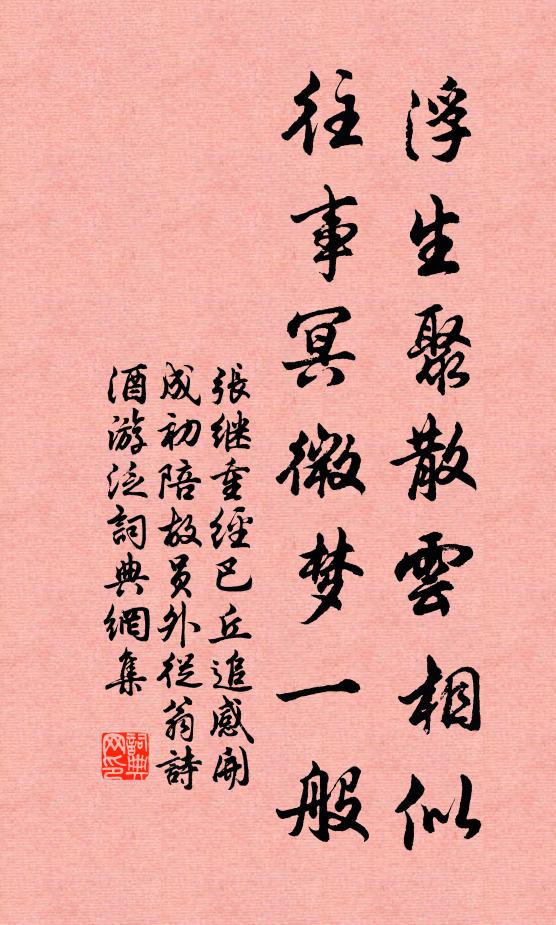 浮生聚散雲相似
往事冥微梦一般
張继重經巴丘追感開
成初陪故員外從翁詩
酒游泛詞典網集
詞典
网印